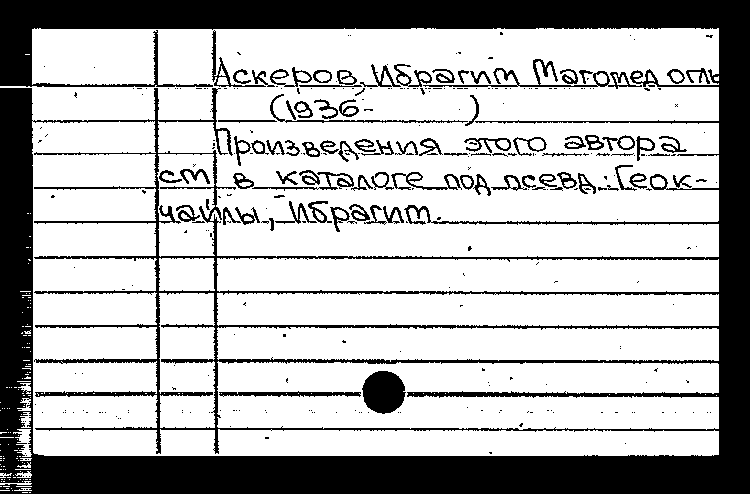 Аскеров, Ибрагим Магомед оглы
(1936-          )
Произведения этого автора
см в каталоге под псевд.: Геок-
чайлы, Ибрагим.